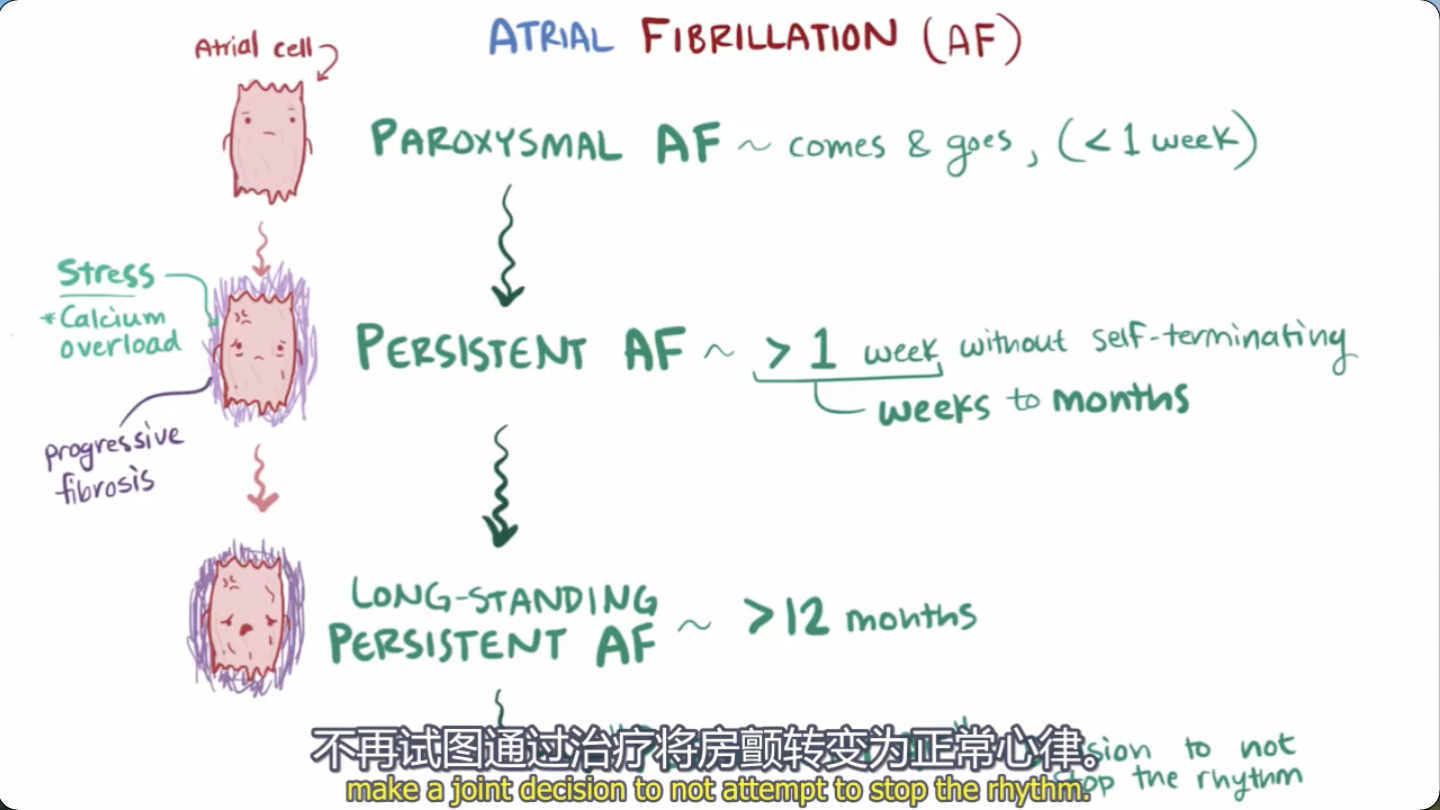 ATRIAL FIBRILLATION (AF)
Atrial cell
PAROXYSMAL AF ~ comes & goes, (< 1 week)
Stress
* Calcium
overload
PERSISTENT AF ~ > 1 week without self-terminating
weeks to months
progressive
fibrosis
LONG-STANDING
PERSISTENT AF ~ >12 months
to not
stop the rhythm
不再试图通过治疗将房颤转变为正常心律。
make a joint decision to not attempt to stop the rhythm.